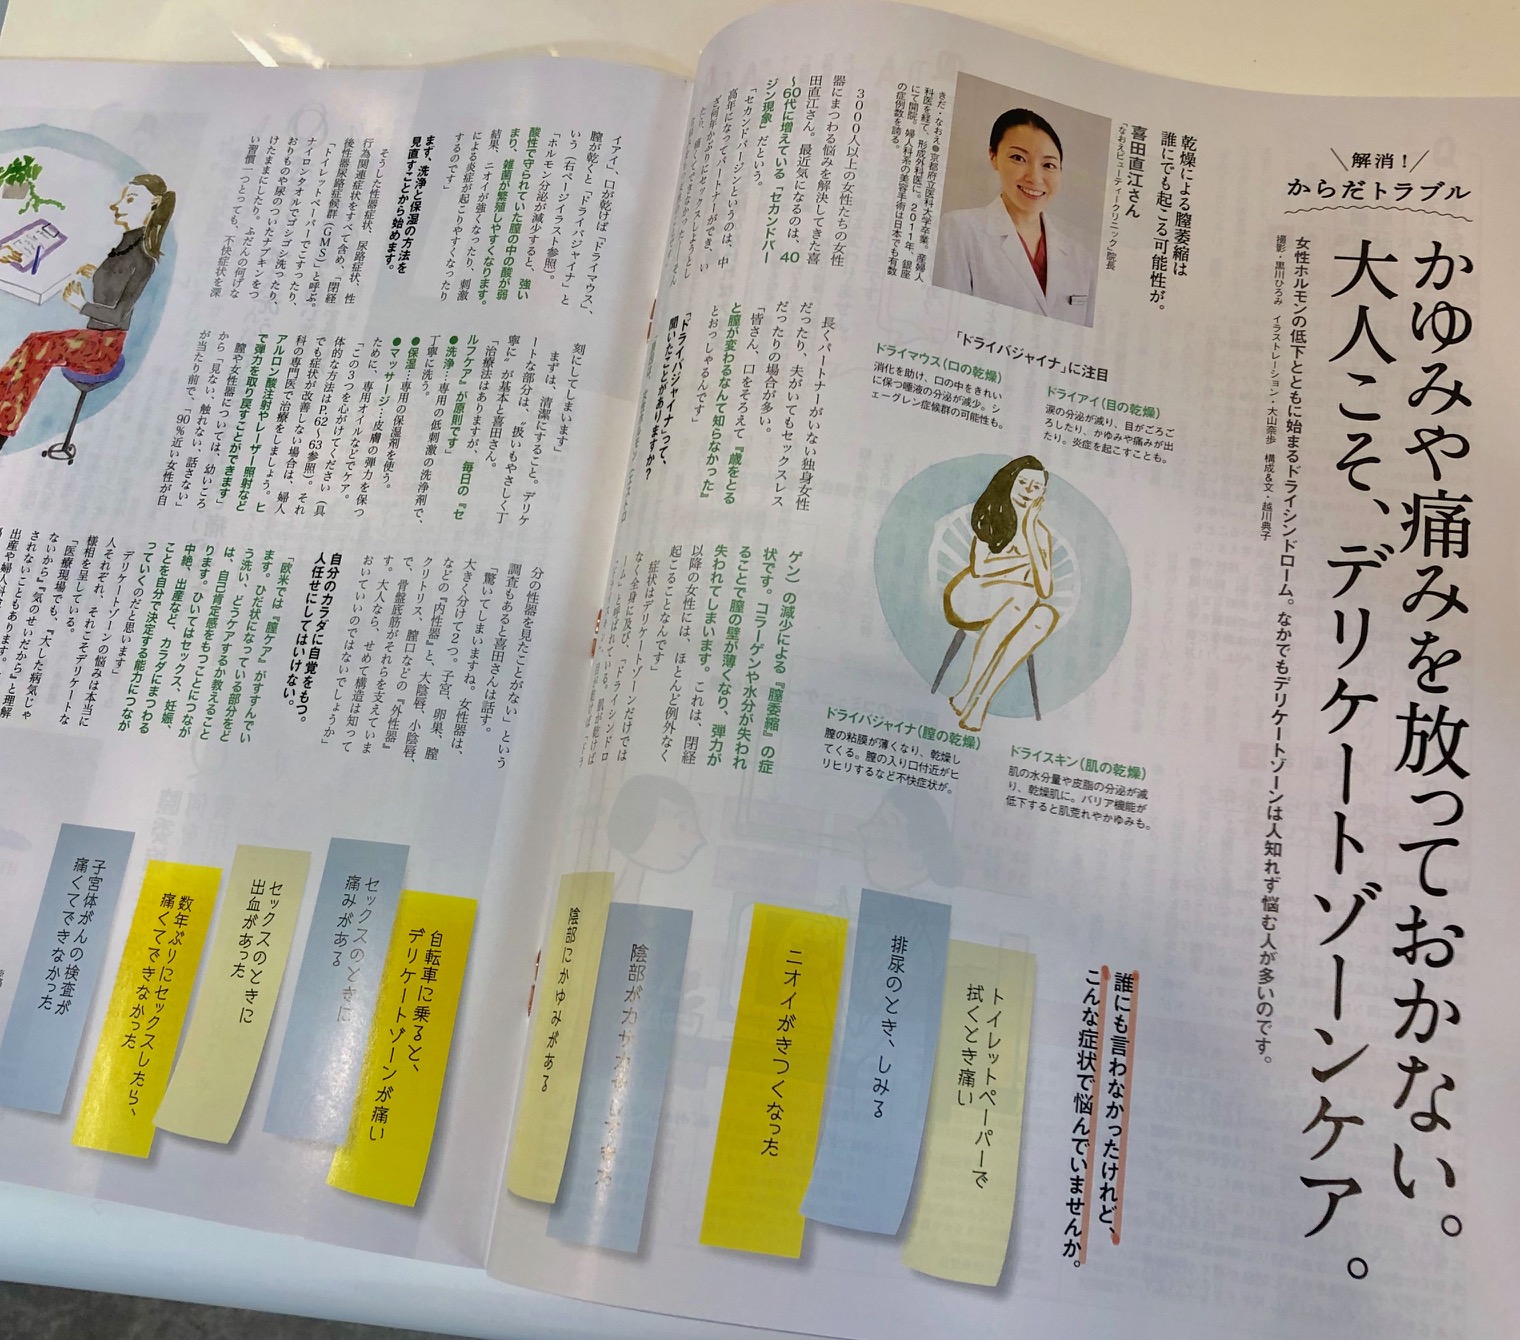 解消!
からだトラブル
かゆみや痛みを放っておかない。
大人こそ、デリケートゾーンケア。
女性ホルモンの低下とともに始まるドライシンドローム。なかでもデリケートゾーンは人知れず悩む人が多いのです。
撮影・黒川ひろみ イラストレーション・大山奈歩 構成&文・越川典子
乾燥による膣萎縮は
誰にでも起こる可能性が。
喜田直江さん
「なおえビューティークリニック」院長
きだ・なおえ●京都府立医科大学卒業。産婦人
科医を経て、形成外科医に。2011年、銀座
にて開院。婦人科系の美容手術は日本でも有数
の症例数を誇る。
3000人以上の女性たちの女性
器にまつわる悩みを解決してきた喜
田直江さん。最近気になるのは、40
〜60代に増えている「セカンドバー
ジン現象」だという。
「セカンドバージンというのは、中
高年になってパートナーができ、い
長くパートナーがいない独身女性
だったり、夫がいてもセックスレス
だったりの場合が多い。
「皆さん、口をそろえて『歳をとる
と膣が変わるなんて知らなかった』
とおっしゃるんです」
「ドライバジャイナ」って、
聞いたことがありますか?
ゲン）の減少による『膣萎縮』の症
状です。コラーゲンや水分が失われ
ることで膣の壁が薄くなり、弾力が
失われてしまいます。これは、閉経
以降の女性には、ほとんど例外なく
起こることなんです」
症状はデリケートゾーンだけでは
なく全身に及び、「ドライシンドロ
「ドライバジャイナ」に注目
ドライマウス（口の乾燥）
消化を助け、口の中をきれい
に保つ唾液の分泌が減少。シ
ェーグレン症候群の可能性も。
ドライアイ（目の乾燥）
涙の分泌が減り、目がごろご
ろしたり、かゆみや痛みが出
たり。炎症を起こすことも。
ドライバジャイナ（膣の乾燥）
膣の粘膜が薄くなり、乾燥し
てくる。膣の入り口付近がヒ
リヒリするなど不快症状が。
ドライスキン（肌の乾燥）
肌の水分量や皮脂の分泌が減
り、乾燥肌に。バリア機能が
低下すると肌荒れやかゆみも。
誰にも言わなかったけれど、
こんな症状で悩んでいませんか。
トイレットペーパーで
拭くとき痛い
排尿のとき、しみる
ニオイがきつくなった
陰部がカサカサしてきた
陰部にかゆみがある
イアイ」、口が乾けば「ドライマウス」、
膣が乾くと「ドライバジャイナ」と
いう（右ページイラスト参照）。
「ホルモン分泌が減少すると、強い
酸性で守られていた膣の中の酸が弱
まり、雑菌が繁殖しやすくなります。
結果、ニオイが強くなったり、刺激
による炎症が起こりやすくなったり
するのです」
まず、洗浄と保湿の方法を
見直すことから始めます。
そうした性器症状、尿路症状、性
行為関連症状をすべて含め、「閉経
後性器尿路症候群（GMS）」と呼ぶ。
「トイレットペーパーでこすったり、
ナイロンタオルでゴシゴシ洗ったり、
おりものや尿のついたナプキンをつ
けたままにしたり。ふだんの何げな
い習慣一つとっても、不快症状を深
刻にしてしまいます」
まずは、清潔にすること。デリケ
ートな部分は、“扱いもやさしく丁
寧に”が基本と喜田さん。
「治療法はありますが、毎日の『セ
ルフケア』が原則です」
●洗浄…専用の低刺激の洗浄剤で、
丁寧に洗う。
●保湿…専用の保湿剤を使う。
●マッサージ…皮膚の弾力を保つ
ために、専用オイルなどでケア。
「この3つを心がけてください（具
体的な方法はP.62〜63参照）。それ
でも症状が改善しない場合は、婦人
科の専門医で治療をしましょう。ヒ
アルロン酸注射やレーザー照射など
で弾力を取り戻すことができます」
膣や女性器については、幼いころ
から「見ない、触れない、話さない」
が当たり前で、「90％近い女性が自
分の性器を見たことがない」という
調査もあると喜田さんは話す。
「驚いてしまいますね。女性器は、
大きく分けて2つ。子宮、卵巣、膣
などの『内性器』と、大陰唇、小陰唇、
クリトリス、膣口などの『外性器』
で、骨盤底筋がそれらを支えていま
す。大人なら、せめて構造は知って
おいていいのではないでしょうか」
自分のカラダに自覚をもつ。
人任せにしてはいけない。
「欧米では『膣ケア』がすすんでい
ます。ひだ状になっている部分をど
う洗い、どうケアするか教えること
は、自己肯定感をもつことにつなが
ります。ひいてはセックス、妊娠、
中絶、出産など、カラダにまつわる
ことを自分で決定する能力につなが
っていくのだと思います」
デリケートゾーンの悩みは本当に
人それぞれ、それこそデリケートな
様相を呈している。
「医療現場でも、『大した病気じゃ
ないから』『気のせいだから』と理解
されないこともあります。
自転車に乗ると、
デリケートゾーンが痛い
セックスのときに
痛みがある
セックスのときに
出血があった
数年ぶりにセックスしたら、
痛くてできなかった
子宮体がんの検査が
痛くてできなかった